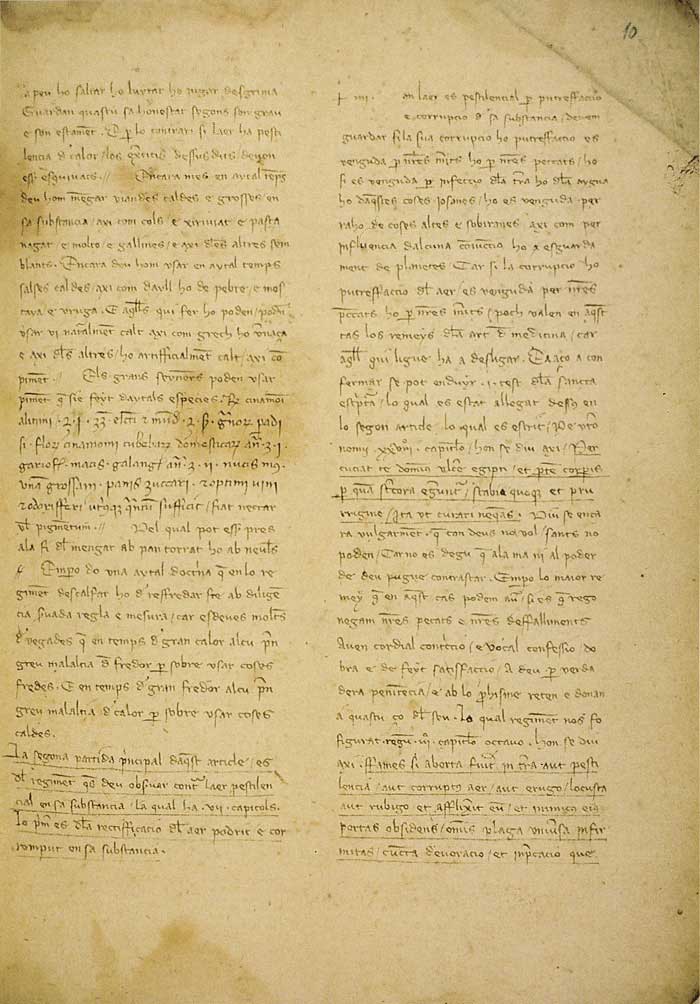 10
a peu ho saltar ho luytar ho jugar desgrima
Guardan quascu sa honestat segons son grau
e son estamet. E p lo contrari si laer ha pesti
lencia d calor / los exercicis dessus dits / deuen
esser esquivats // Encara mes en aytal temps
deu hom mengar viandes caldes e grosses en
sa substancia / axi com cols e xiriviat e pasta
nagat e molto e gallines / e axi dles altres sem
blants. Encara deu hom usar en aytal temps
salses caldes / axi com dayll ho de pebre / e mos
taya e uruga. E aqlls qui fer ho poden / poden
usar vi naturalmet calt axi com grech ho vnaça
e axi dls altres / ho artifficialmet calt / axi co
pimet. // Els grans senyors poden usar
pimet q sie feyt daytals especies. R. cinamoi
si. flor cinamomi cubebar domesticar an. 3. i.
garioff. macis. galang. an. 3. ii. nucis mus.
una grossam. panis zuccari. z optimi vini
z odorifferi / utriusq quantu sufficit / fiat nectar
vl pigmetum. // Del qual pot esser pres
a la fi dl mengar ab pan torrat ho ab neules
Empo do una aytal doctrina q en lo re
gimet descalfar ho d reffredar ste ab diligen
cia / suada regla e mesura / car esdeves molts
d vegades q en temps d gran calor alcu pn
greu malaltia d fredor p sobre usar coses
fredes. E en temps d gran fredor alcu pn
greu malaltia d calor p sobre usar coses
caldes.
La segona partida principal daqst article / es
dl regimet qs deu observar contra laer pestilen
cial en sa substancia / la qual ha .vii. capitols.
Lo prim es dla rectifficacio dl aer podrit e cor
romput en sa substancia.
+ iiii. an laer es pestilencial p putreffaccio
e corrupcio d sa substancia / devem
guardar si la sua corrupcio ho putreffaccio es
venguda p nres merits ho p nres peccats / ho
si es venguda p infeccio dla tra ho dla aygua
ho daqstes coses josanes / ho es venguda per
raho de coses altes e sobiranes axi com per
influencia dalcuna conjuccio ho x esguarda
ment de planetes. Car si la corrupcio ho
putreffaccio dl aer / es venguda per nres
peccats ho p nres merits / poch valen en aqst
cas los remeys dla art d medicina / car
aqll qui ligue ha a desligar. E aço a con
fermar se pot enduyr .i. test dla sancta
escriptura / lo qual es estat allegat dessus en
lo segon article / lo qual es escrit / Deutro
nomii xxviii. capitulo / hon se diu axi / Per
cuciat te dominus ulcere egipti / et parte corporis
p quam stercora egeruntur / scabie quoque et pru
rigine / ita ut curari nequeas. Diu se enca
ra vulgarment q con deus no vol / sants no
poden / Car no es degu q a la ma ni al poder
de deu pugue contrastar. Empo lo maior re
mey q en aqst cas podem auer / si es q rego
negam nres peccats e nres deffalliments
aven cordial contriccio / e vocal confessio / do
bra e de feyt satisfaccio / a deu p verda
dera penitecia / e ab lo prohisme reten e donan
a quascu ço dl seu. Lo qual regiment nos fo
figurat. regum .iii. capitulo octavo. hon se diu
axi. ffames si aborta fuerit in terra aut pesti
lencia / aut corruptus aer / aut erugo / locusta
aut rubigo et afflixerit eum / et inimicus eius
portas obsidens / omnis plaga universa infir
mitas / cuncta devoracio / et inprecacio que